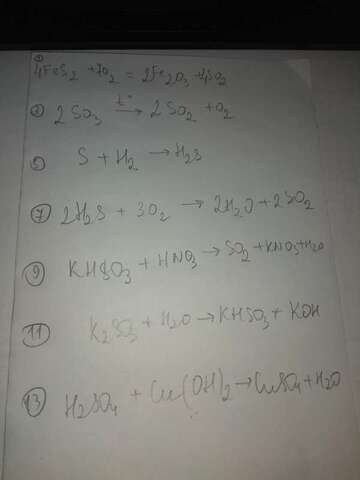 ① 4FeS₂ + 7O₂ = 2Fe₂O₃ + 4SO₂
③ 2SO₃ t° → 2SO₂ + O₂
⑤ S + H₂ → H₂S
⑦ 2H₂S + 3O₂ → 2H₂O + 2SO₂
⑨ KHSO₃ + HNO₃ → SO₂ + KNO₃ + H₂O
⑪ K₂SO₃ + H₂O → KHSO₃ + KOH
⑬ H₂SO₄ + Cu(OH)₂ → CuSO₄ + H₂O